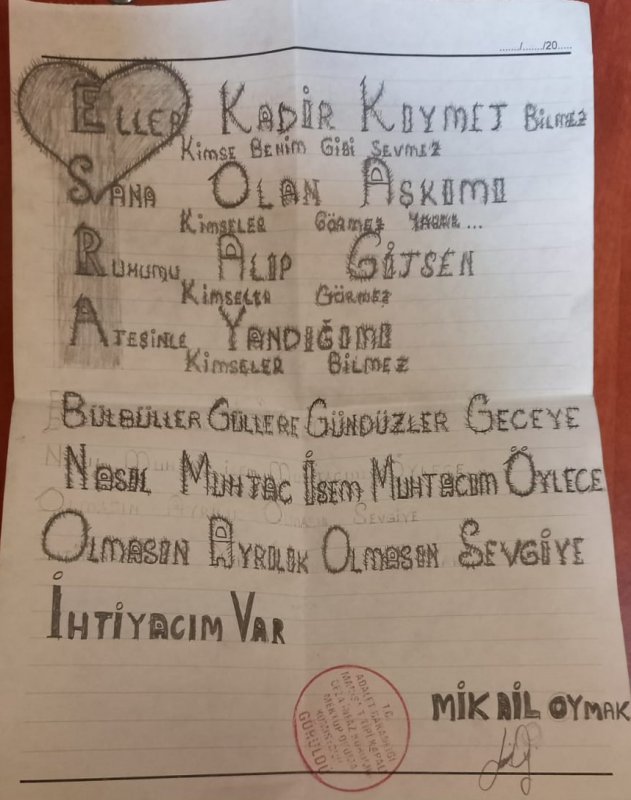 ....../....../20.....
ELLER KADİR KIYMET BİLMEZ
KİMSE BENİM GİBİ SEVMEZ
SANA OLAN AŞKIMI
KİMSELER GÖRMEZ ...
RUHUMU ALIP GİTSEN
KİMSELER GÖRMEZ
ATEŞİNLE YANDIĞIMI
KİMSELER BİLMEZ
BÜLBÜLLER GÜLLERE GÜNDÜZLER GECEYE
NASIL MUHTAC İSEM MUHTACIM ÖYLECE
OLMASIN AYRILIK OLMASIN SEVGİYE
İHTİYACIM VAR
T.C.
ADALET BAKANLIĞI
MEKTUP OKUMA
KOMİSYONU
GÖRÜLDÜ
MİKAİL OYMAK